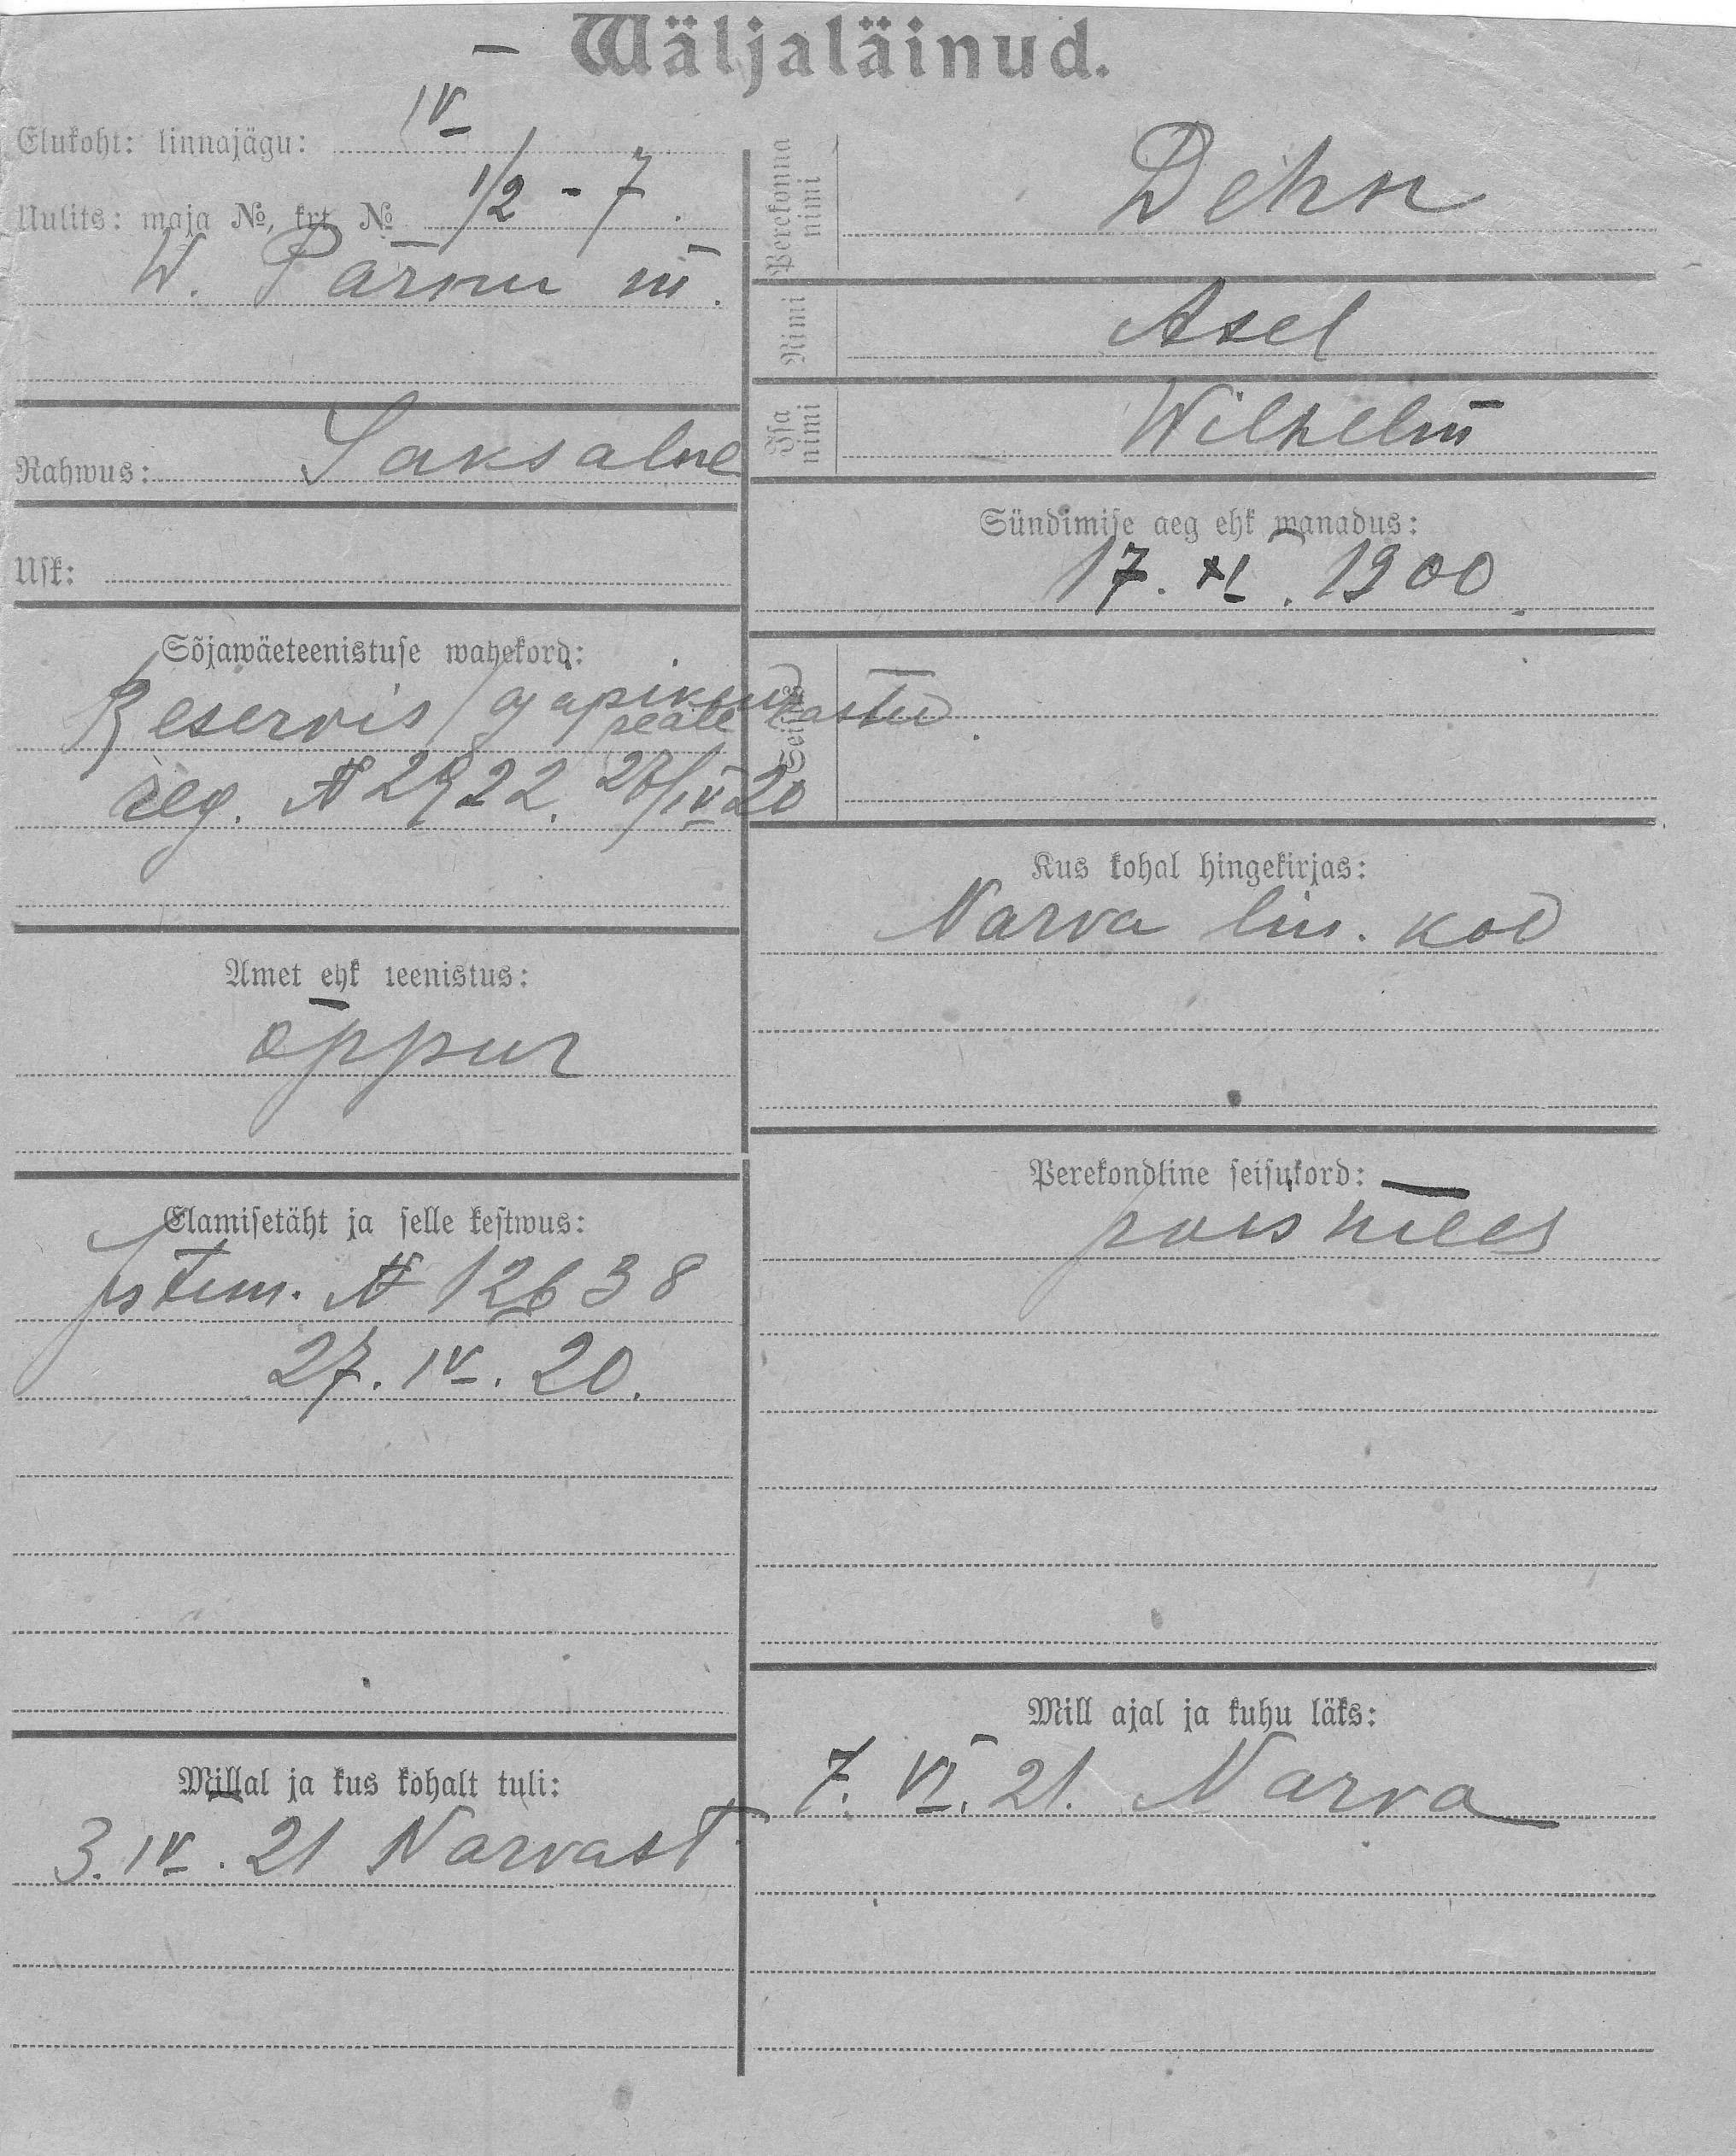 Wäljaläinud.
Elukoht: linnajägu: IV
Uulits: maja №, krt. № 1/2 - 7.
W. Pärnu m.
Rahwus: Saksalne
Usk:
Sõjawäeteenistuse wahekord:
Reservis / ajapikendust
peale
reg. № 2922. 27/IV 20
Amet ehk teenistus:
õppur
Elamisetäht ja selle kestwus:
№ 12638
27. IV. 20.
Millal ja kus kohalt tuli:
3. IV. 21 Narvast
Perekonna nimi Dehn
Nimi Axel
Isa nimi Wilhelm
Sündimise aeg ehk wanadus:
17. XI. 1900.
Kus kohal hingekirjas:
Narva lin. kod
Perekondline seisukord:
poismees
Mill ajal ja kuhu läks:
7. VI. 21. Narva